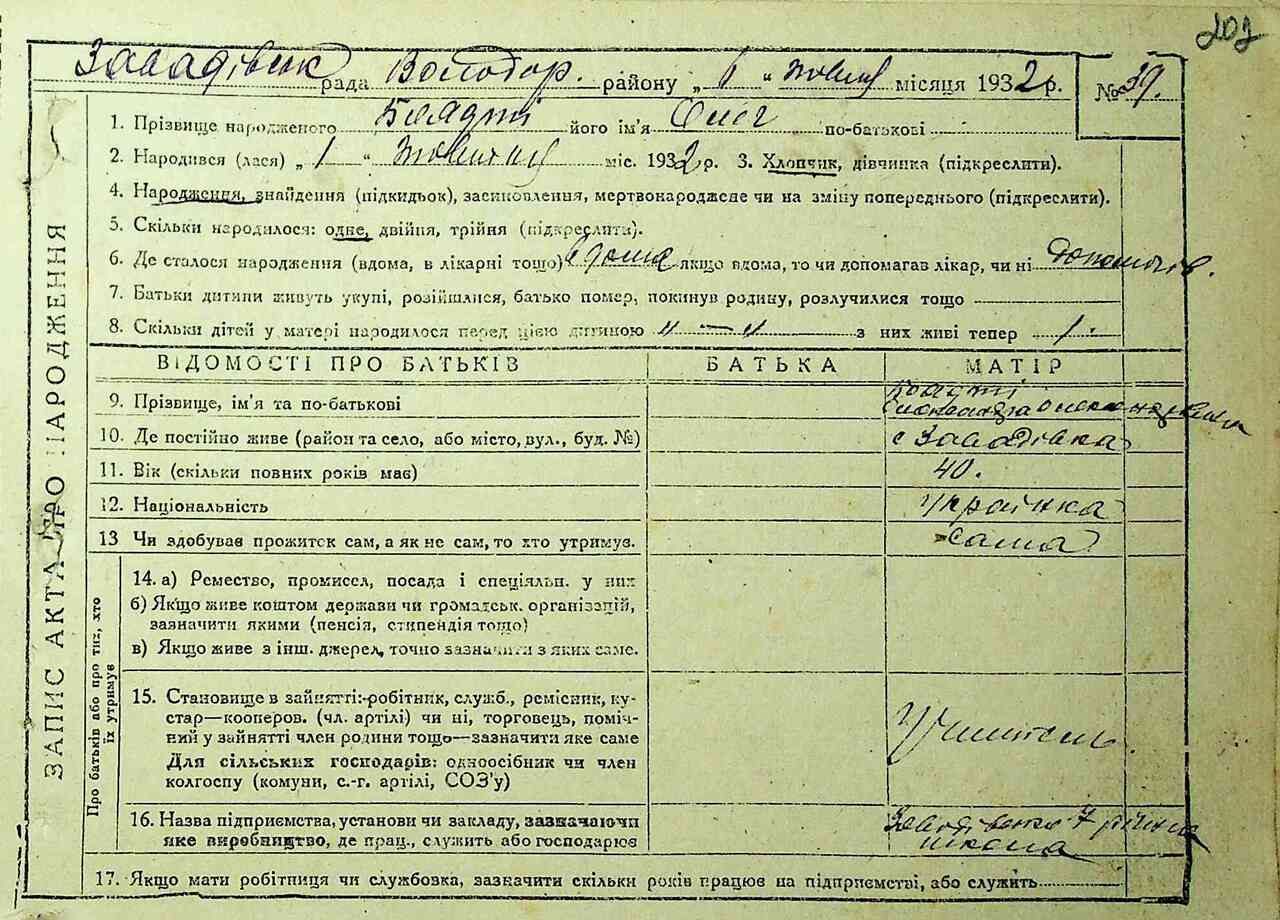 202
Завадівськ рада Володар. району „ 1 " жовтня місяця 1932 р. № 39.
1. Прізвище народженого його ім'я Олег по-батькові
2. Народився (лася) „ 1 " жовтня міс. 1932 р. 3. Хлопчик, дівчинка (підкреслити).
4. Народження, знайдення (підкидьок), засиновлення, мертвонароджене чи на зміну попереднього (підкреслити).
5. Скільки народилося: одне, двійня, трійня (підкреслити).
6. Де сталося народження (вдома, в лікарні тощо) вдома якщо вдома, то чи допомагав лікар, чи ні
7. Батьки дитини живуть укупі, розійшлися, батько помер, покинув родину, розлучилися тощо
8. Скільки дітей у матері народилося перед цією дитиною „ — „ з них живі тепер 1.
ВІДОМОСТІ ПРО БАТЬКІВ БАТЬКА МАТІР
9. Прізвище, ім'я та по-батькові
Олександра Олександрівна
10. Де постійно живе (район та село, або місто, вул., буд. №) с Завадівка
11. Вік (скільки повних років має) 40.
12. Національність Українка
13 Чи здобував прожиток сам, а як не сам, то хто утримує. сама
14. а) Ремество, промисел, посада і спеціяльн. у них
б) Якщо живе коштом держави чи громадськ. організацій,
зазначити якими (пенсія, стипендія тощо)
в) Якщо живе з інш. джерел, точно зазначити з яких саме.
15. Становище в зайнятті:-робітник, служб., ремісник, ку-
стар—кооперов. (чл. артілі) чи ні, торговець, поміч-
ний у зайнятті член родини тощо—зазначити яке саме
Для сільських господарів: одноосібник чи член
колгоспу (комуни, с.-г. артілі, СОЗ'у)
Учитель.
16. Назва підприємства, установи чи закладу, зазначаючи
яке виробництво, де прац., служить або господарює
Завадівська 7 річна
школа
17. Якщо мати робітниця чи службовка, зазначити скільки років працює на підприємстві, або служить
ЗАПИС АКТА ПРО НАРОДЖЕННЯ
Про батьків або про тих, хто
їх утримує